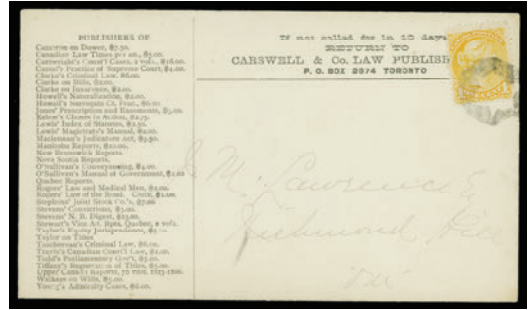 PUBLISHERS OF
Cameron on Dower, $7.50.
Canadian Law Times per an., $5.00.
Cartwright's Const'l Cases, 2 vols., $16.00.
Cassel's Practice of Supreme Court, $4.00.
Clarke's Criminal Law, $6.00.
Clarke on Bills, $2.00.
Clarke on Insurance, $2.00.
Howell's Naturalization, $2.00.
Howell's Surrogate Ct. Prac., $6.00
Jones' Prescription and Easements, $5.00.
Kelso's Choses in Action, $2.75.
Lewis' Index of Statutes, $2.50.
Lewis' Magistrate's Manual, $2.00.
Maclennan's Judicature Act, $5.50.
Manitoba Reports, $10.00.
New Brunswick Reports.
Nova Scotia Reports.
O'Sullivan's Conveyancing, $4.00.
O'Sullivan's Manual of Government, $1.00
Quebec Reports.
Rogers' Law and Medical Men, $2.00.
Rogers' Law of the Road. Cloth, $2.00.
Stephens' Joint Stock Co.'s, $7.00
Stevens' Convictions, $3.00.
Stevens' N. B. Digest, $13.00.
Stewart's Vice Ad. Rpts, Quebec, 2 vols.
Taylor's Equity Jurisprudence,
Taylor on Titles
Taschereau's Criminal Law, $6.00.
Travis's Canadian Const'l Law, $2.00.
Todd's Parliamentary Gov't, $5.00.
Tiffany's Registration of Titles, $5.00.
Upper Canada Reports, 70 vols. 1823-1866.
Walkem on Wills, $5.00.
Young's Admiralty Cases, $6.00.
If not called for in 10 days
RETURN TO
CARSWELL & Co. LAW PUBLISH
P. O. BOX 2574 TORONTO
J M. Lawrence
Richmond
Ont